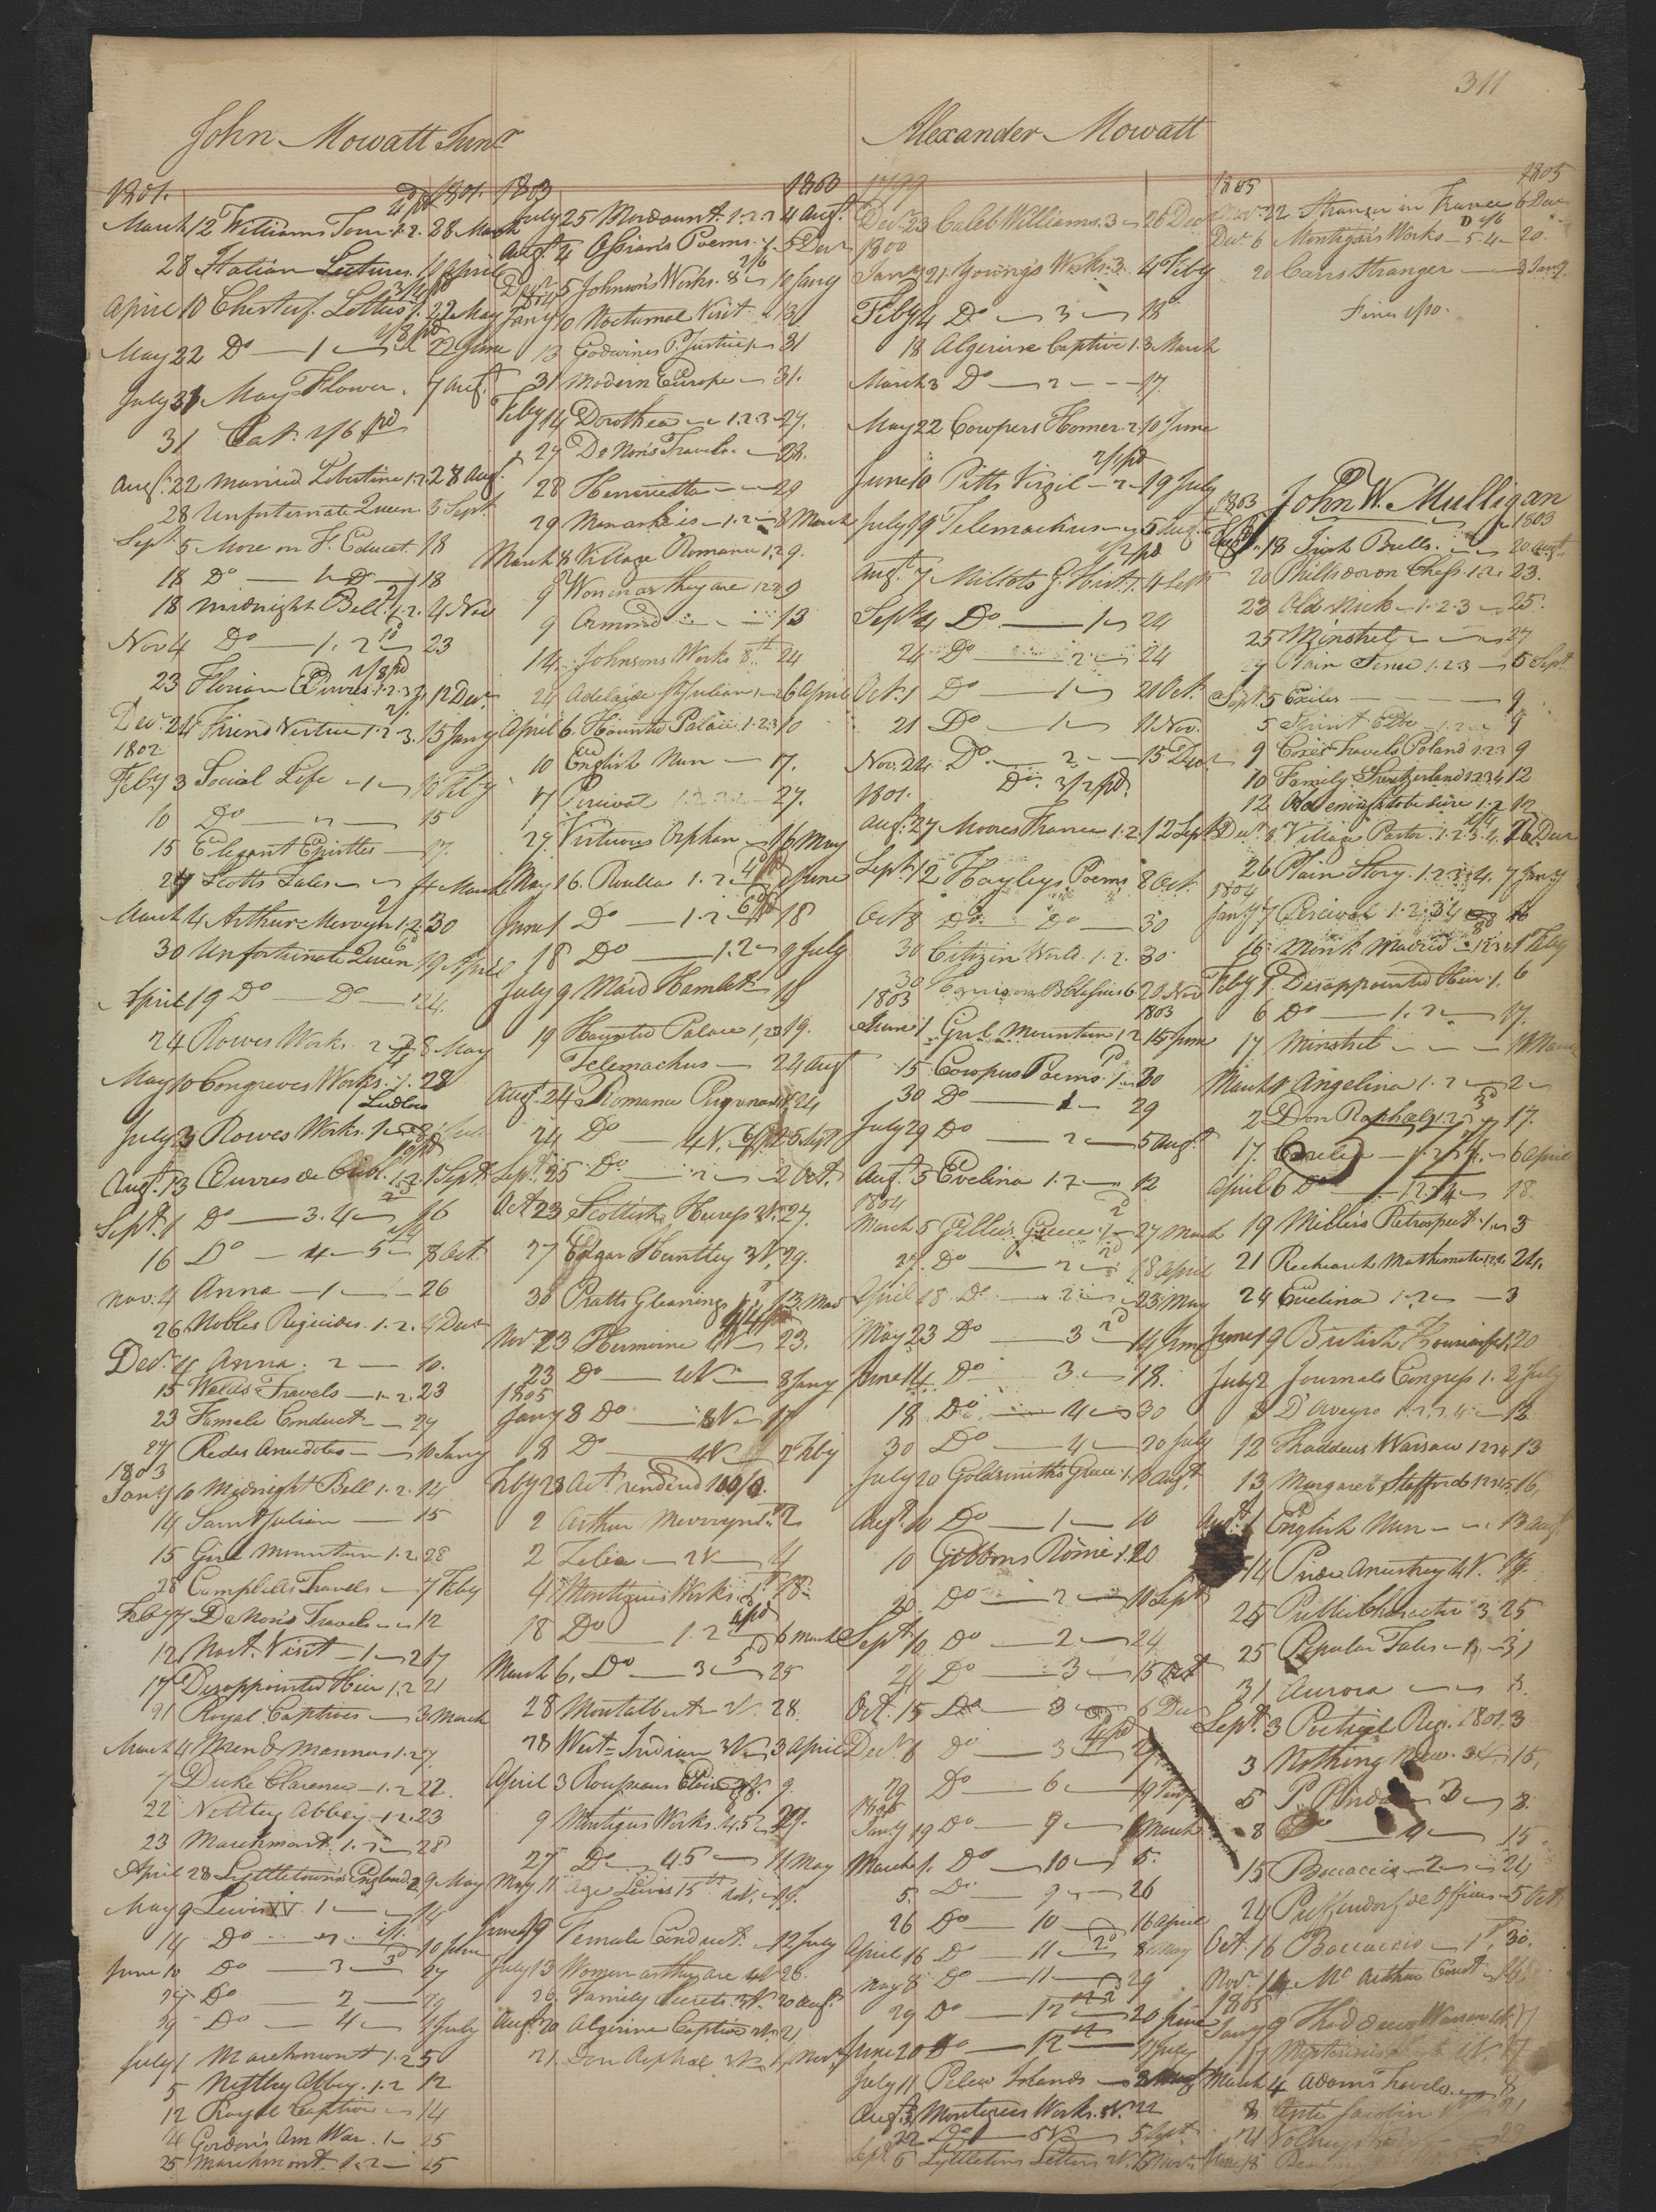 311
John Mowatt Junr
1801. 1801.
March 12 Williams Tour 1.2. 28 March
28 Italian Letters 11 April
April 10 Chesterf. Letters 1. 22 May
May 22 Do — 1 — 22 June
July 31 May Flower. 7 Augt.
31 Cat. 1/6 pd
Augt. 22 Married Libertine 1.2. 28 Aug.
28 Unfortunate Queen. 5 Sept.
Sept 5 More on F. Educat. 18
18 Do — 1 — 18
18 Midnight Bell 1.2. 4 Nov
Nov 4 Do — 1.2 — 23
23 Florian Œuvres 1.2.3 12 Decr.
Decr. 24 Friend Virtue 1.2.3. 15 Jany
1802
Feby 3 Social Life — 1 — 10 Feby
10 Do — 15
15 Elegant Epistles — 17.
27 Scotts Tales — 4 March
March 4 Arthur Mervyn 1.2. 30
30 Unfortunate Queen 19 April
April 19 Do — Do — 24.
24 Rowes Works 2 8 May
May 10 Congreves Works. 1. 28
Ludlow
July 3 Rowes Works. 1
Augt. 13 Œuvres de 1.2. 1 Sept.
Sept. 1 Do — 3.4 — 16
16 Do — 4 — 5 — 8 Oct.
Nov. 4 Anna — 1 — 26
26 Nobles Regicides. 1.2. 4 Decr
Decr. 4 Anna. 2 — 10.
15 Welds Travels — 1.2. 23
23 Female Conduct — 27
27 Redes Anecdotes — 10 Jany
1803
Jany 10 Midnight Bell 1.2. 14
14 Saint Julian — 15
15 Girl Mountain 1.2. 28
28 Campbells Travels — 7 Feby
Feby 7 De Non's Travels — 12
12 Noct. Visit — 1 — 2 17
17 Disappointed Heir 1.2 21
21 Royal Captives — 3 March
March 4 Men & Manners 1.2 7
7 Duke Clarence — 1.2 22.
22 Nettley Abbey — 1.2. 23
23 Marchmont. 1.2 — 28
April 28 Lyttletown's England. 2. 9 May
May 9 Lewis XV. 1 — 14
14 Do — 2 — 10 June
June 10 Do — 3 — 27
27 Do — 2 — 29
29 Do — 4 — 1 July
July 1 Marchmont 1.2 5
5 Nettley Abbey. 1.2 12
12 Royal Captive — 14
14 Gordon's Am War. 1 — 25
25 Marchmont. 1.2 — 25
1803 1803
July 25 Mordaunt. 1.2.3 4 Augt.
Augt. 4 Ossians Poems. 1. 5 Decr
Decr 5 Johnson's Works. 8 — 10 Jany
1804
Jany 10 Nocturnal Visit — 13
13 Godwines P. Justice 1 — 31
31 Modern Europe — 31.
Feby 14 Dorothea — 1.2.3 — 27.
27 De Non's Travels. — 28.
28 Henrietta — 29
29 Monarkies — 1.2 — 8 March
March 8 Village Romance 1.2 9.
9 Women as they are 1.2.3 9
9 Ormond — 13
14. Johnsons Works 8th 24
24 Adelaide St Julian 1 — 6 April
April 6. Haunted Palace 1.2.3. 10
10 English Nun — 17.
17 Percival 1.2.3.4 — 27.
27. Virtuous Orphan — 16 May
May 16. Rivella 1.2 — 1 June
June 1 Do — 1.2 — 18
18 Do — 1.2 — 9 July
July 9 Maid Hamlet — 19
19 Haunted Palace 1.2.3 19.
Telemachus — 24 Aug
Augt. 24 Romance 24
24 Do — 4 V. 25 Sept
Sept. 25 Do — 2 — 2 Oct.
Oct 23 Scottish Heiress 2V. 27.
27 Edgar Huntley 3V. 29.
30 Pratts Gleanings 13 Nov
Nov 23 Hermione 1V 23.
23 Do — 2V — 8 Jany
1805
Jany 8 Do — 3V — 17
8 Do — 4V — 2 Feby
Feby 28 Act. rendered 100/9.
2 Arthur Mervyn 1st. 2
2 Zelia — 2V — 4
4 Montagues Works 1 18
18 Do — 1.2 — 6 March
March 6. Do — 3 — 25
28 Montalbert — 2V. 28.
28 West Indian 3V — 3 April
April 3 Rousseaus Eloisa 3V. 9.
9 Montagus Works. 4.5 — 27.
27 Do — 4.5 — 11 May
May 11 Age Lewis 15th 1V. — 19.
June 19 Female Conduct. — 12 July
July 13 Women as they are 4V 26.
26. Family Secrets. 3V. 20 Augt.
Augt. 20 Algerine Captive 2V. 21
21. Don Raphael 3V 1 Novr.
Alexander Mowatt
1799
Decr. 23 Caleb Williams. 3 — 26 Decr
1800
Jany 21. Young's Works. 3. 4 Feby
Feby 4 Do — 3 — 18
18 Algerine Captive 1. 3 March
March 3 Do — 2 — 17.
May 22 Cowpers Homer. 2. 10 June
2/1 pd
June 10 Pitts Virgil — 2 — 19 July
July 19 Telemachus — 5 Augt.
Augt. 7 Millots G. Hist. 1. 4 Sept
Sept 4 Do — 1 — 24
24 Do — 2 — 24
Oct. 1 Do — 1 — 21 Oct.
21 Do — 1 — 11 Nov.
Nov. 24. Do. — 2 — 15 Decr
Do. 3/2 pd.
1801.
Augt. 27 Moores France 1.2. 12 Sept
Sept. 12 Hayleys Poems 8 Oct.
Oct 8 Do. — Do — 30
30 Citizen World. 1.2. 30.
30 20 Nov
1803 1803
June 1 Girl Mountain 1.2 15 June
15 Cowpers Poems. 1 — 30
30 Do — 1 — 29
July 29 Do — 2 — 5 Augt
Augt. 5 Evelina 1.2 — 12
1804
March 5 Gillies Greece. 1 — 27 March
27. Do — 2 — 18 April
April 18 Do — 2 — 23 May
May 23 Do — 3 — 14 June
June 14. Do — 3 — 18.
18 Do — 4 — 30
30 Do — 4 — 20 July
July 20 Goldsmiths Greece. 1. 10 Augt.
Augt. 10 Do — 1 — 10
10 Gibbons Rome 1. 20
20 Do — 2 — 10 Sept
Sept. 10 Do — 2 — 24
24 Do — 3 — 15 Oct
Oct. 15 Do — 3 — 6 Dec
Decr. 6 Do — 3 — 29
29 Do — 6 — 19 Jany
1805
Jany 19 Do — 9 — 1 March
March 1. Do — 10 — 5.
5. Do — 9 — 26
26 Do — 10 — 16 April
April 16 Do — 11 — 8 May
May 8 Do — 11 — 29
29 Do — 12 — 20 June
June 20 Do — 12 — 11 July
July 11 Pelew Islands — 3 Augt
Augt. 3 Montagues Works. 5V. 22
22 Do — 5V — 5 Sept
Sept. 6 Lyttletons Letters 2V. 15 Novr.
1805 1805
Novr. 22 Stranger in France 6 Decr
Decr. 6 Montagu's Works — 5.4 — 20.
20 Carrs Stranger — 3 Jany.
Fines 1/10.
John W. Mulligan
1803 1803
Augt. 18 Irish Bulls. — 20 Augt.
20 Philidor on Chess. 1.2. 23.
23 Old Nick — 1.2.3 — 25.
25 Minstrel — 27
27 Plain Sense 1.2.3 — 5 Sept.
Sept. 5 Exiles — 9
5 Saint Elbe — 1.2 — 9
9 Coxes Travels Poland 1.2.3 9
10 Family Switzerland 1.2.3.4 12
12 Odd enough to be sure 1.2 17
Decr. 8 Village Pastor. 1.2.3.4. 26 Decr
26 Plain Story. 1.2.3.4. 7 Jany
1804
Jany 7 Percival 1.2.3.4 16
16 Monk Madrid — 1.2.3 1 Feby
Feby 1. Disappointed Heir. 1. 6
6 Do — 1.2 — 17.
17 Minstrel — 1 March
March 1 Angelina 1.2 — 2
2 Don Raphael 1.2.3 17.
17. Evelina — 6 April
April 6 Do — 18.
19 Millers Retrospect. 1 — 3
21 Recherch Mathematics 24.
24 Evelina 1.2 — 3
June 19 British 20
July 2 Journals Congress 1. 2 July
3 D'Aveyro 1.2.3.4 — 12
12 Thaddeus Warsaw 1.2.3.4 13
13 Margaret Stafford 1.2.3.4.5 16.
Augt. 1 English Nun — 13 Augt
14 Pride Ancestry 4V. 19.
25 Public Character 3 25
25 Popular Tales — 31
31 Aurora — 3.
Sept. 3 Poetical Reg. 1801. 3
3 Nothing New. 3 — 15.
5 P. Pindar 3 — 8.
8 Do — 4 — 15
15 Boccaccio — 2 — 24
24 Puffendorf de Officiis — 5 Oct
Oct. 16 Boccaccio — 1st. 30.
Novr. 14 Mc Arthur Court
1805
Jany 9 Thaddeus Warsaw 4V. 17
17 Mysterious
March 4 Adam's Travels. — 8
8 Anti Jacobin